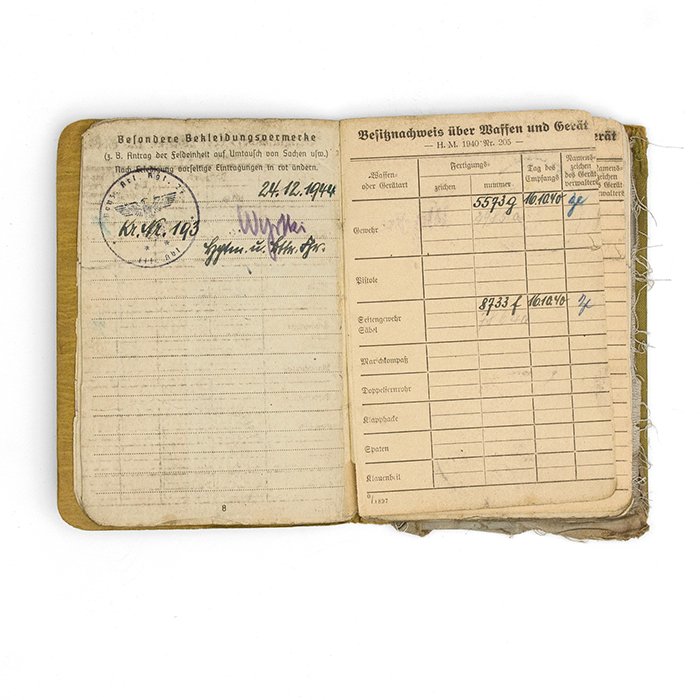 Besondere Bekleidungsvermerke
(z. B. Antrag der Feldeinheit auf Umtausch von Sachen usw.)
Nach Erledigung vorseitige Eintragungen in rot ändern.
24.12.1944
Kr. Nr. 193
Hptm. u. Bttr. Chr.
8
Besitznachweis über Waffen und Gerät
— H. M. 1940 Nr. 205 —
Waffen-
oder Gerätart
Fertigungs-
zeichen
nummer
Tag des
Empfangs
Namens-
zeichen
des Gerät
verwalters
Gewehr
5593 g
16.10.40
Pistole
Seitengewehr
Säbel
8733 f
16.10.40
Marschkompaß
Doppelfernrohr
Klapphacke
Spaten
Klauenbeil
erät
Namens-
zeichen
des Gerät
verwalters